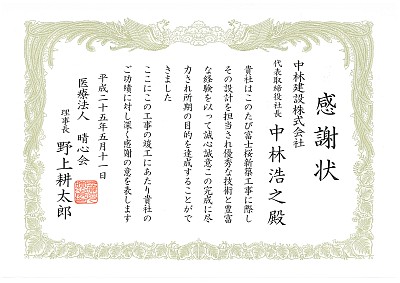 感謝状
中林建設株式会社
代表取締役社長 中林浩之殿
貴社はこのたび富士桜新築工事に際し
その設計を担当され優秀な技術と豊富
な経験を以って誠心誠意この完成に尽
力され所期の目的を達成することがで
きました
ここにこの工事の竣工にあたり貴社の
ご功績に対し深く感謝の意を表します
平成二十五年五月十一日
医療法人 晴心会
理事長 野上耕太郎